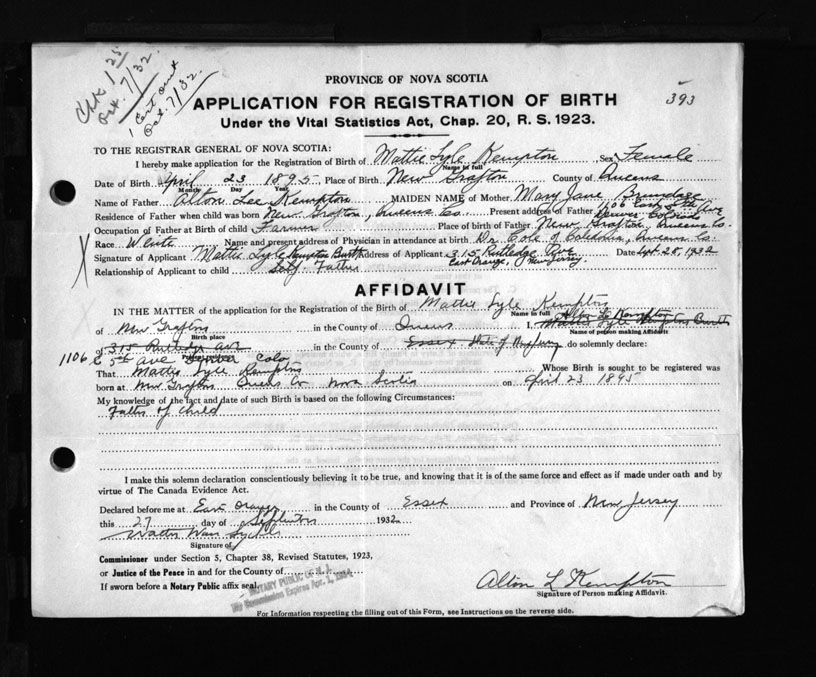 Chk 1 25
Oct. 7/32.
1 Cert out
Oct. 7/32.
393
PROVINCE OF NOVA SCOTIA
APPLICATION FOR REGISTRATION OF BIRTH
Under the Vital Statistics Act, Chap. 20, R. S. 1923.
TO THE REGISTRAR GENERAL OF NOVA SCOTIA:
I hereby make application for the Registration of Birth of Mattie Lyle Kempton Sex Female
Name in full
Date of Birth April 23 1895 Place of Birth New Grafton County of Queens
Month Day Year
Name of Father Alton Lee Kempton MAIDEN NAME of Mother Mary Jane Brundage
1106 East 5th Ave
Residence of Father when child was born New Grafton, Queens Co. Present address of Father Denver Colorado
Occupation of Father at Birth of child Farmer Place of birth of Father New Grafton, Queens Co.
Race White Name and present address of Physician in attendance at birth Dr. Cole of Caledonia, Queens Co.
Signature of Applicant Mattie Lyle Kempton Address of Applicant 315 Rutledge Ave Date Sept. 28, 1932
East Orange, New Jersey.
Relationship of Applicant to child Self Father
AFFIDAVIT
IN THE MATTER of the application for the Registration of the Birth of Mattie Lyle Kempton
Name in full Alton L Kempton
of New Grafton in the County of Queens I, Mattie Lyle Kempton
Birth place Name of person making Affidavit
of 315 Rutledge Ave in the County of Essex State of New Jersey do solemnly declare:
1106 E 5th Ave Denver Colo
That Mattie Lyle Kempton Whose Birth is sought to be registered was
born at New Grafton Queens Co Nova Scotia on April 23 1895
My knowledge of the fact and date of such Birth is based on the following Circumstances:
Father of Child
I make this solemn declaration conscientiously believing it to be true, and knowing that it is of the same force and effect as if made under oath and by
virtue of The Canada Evidence Act.
Declared before me at East Orange in the County of Essex and Province of New Jersey
this 27 day of September 1932
Walter Van
Signature of
Commissioner under Section 5, Chapter 38, Revised Statutes, 1923,
or Justice of the Peace in and for the County of
If sworn before a Notary Public affix seal.
NOTARY PUBLIC OF N. J.
My Commission Expires Apr. 1,
Alton L Kempton
Signature of Person making Affidavit.
For Information respecting the filling out of this Form, see Instructions on the reverse side.